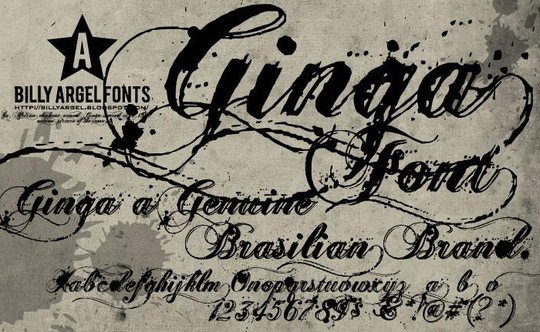 Ginga
Font
A
BILLY ARGEL FONTS
HTTP://BILLYARGEL.BLOGSPOT.COM/
Ginga a Genuine
Brasilian Brand.
Aabcdefghijklm Nnopqrstuvwxyz a b o
1234567898 &*!@#(?)